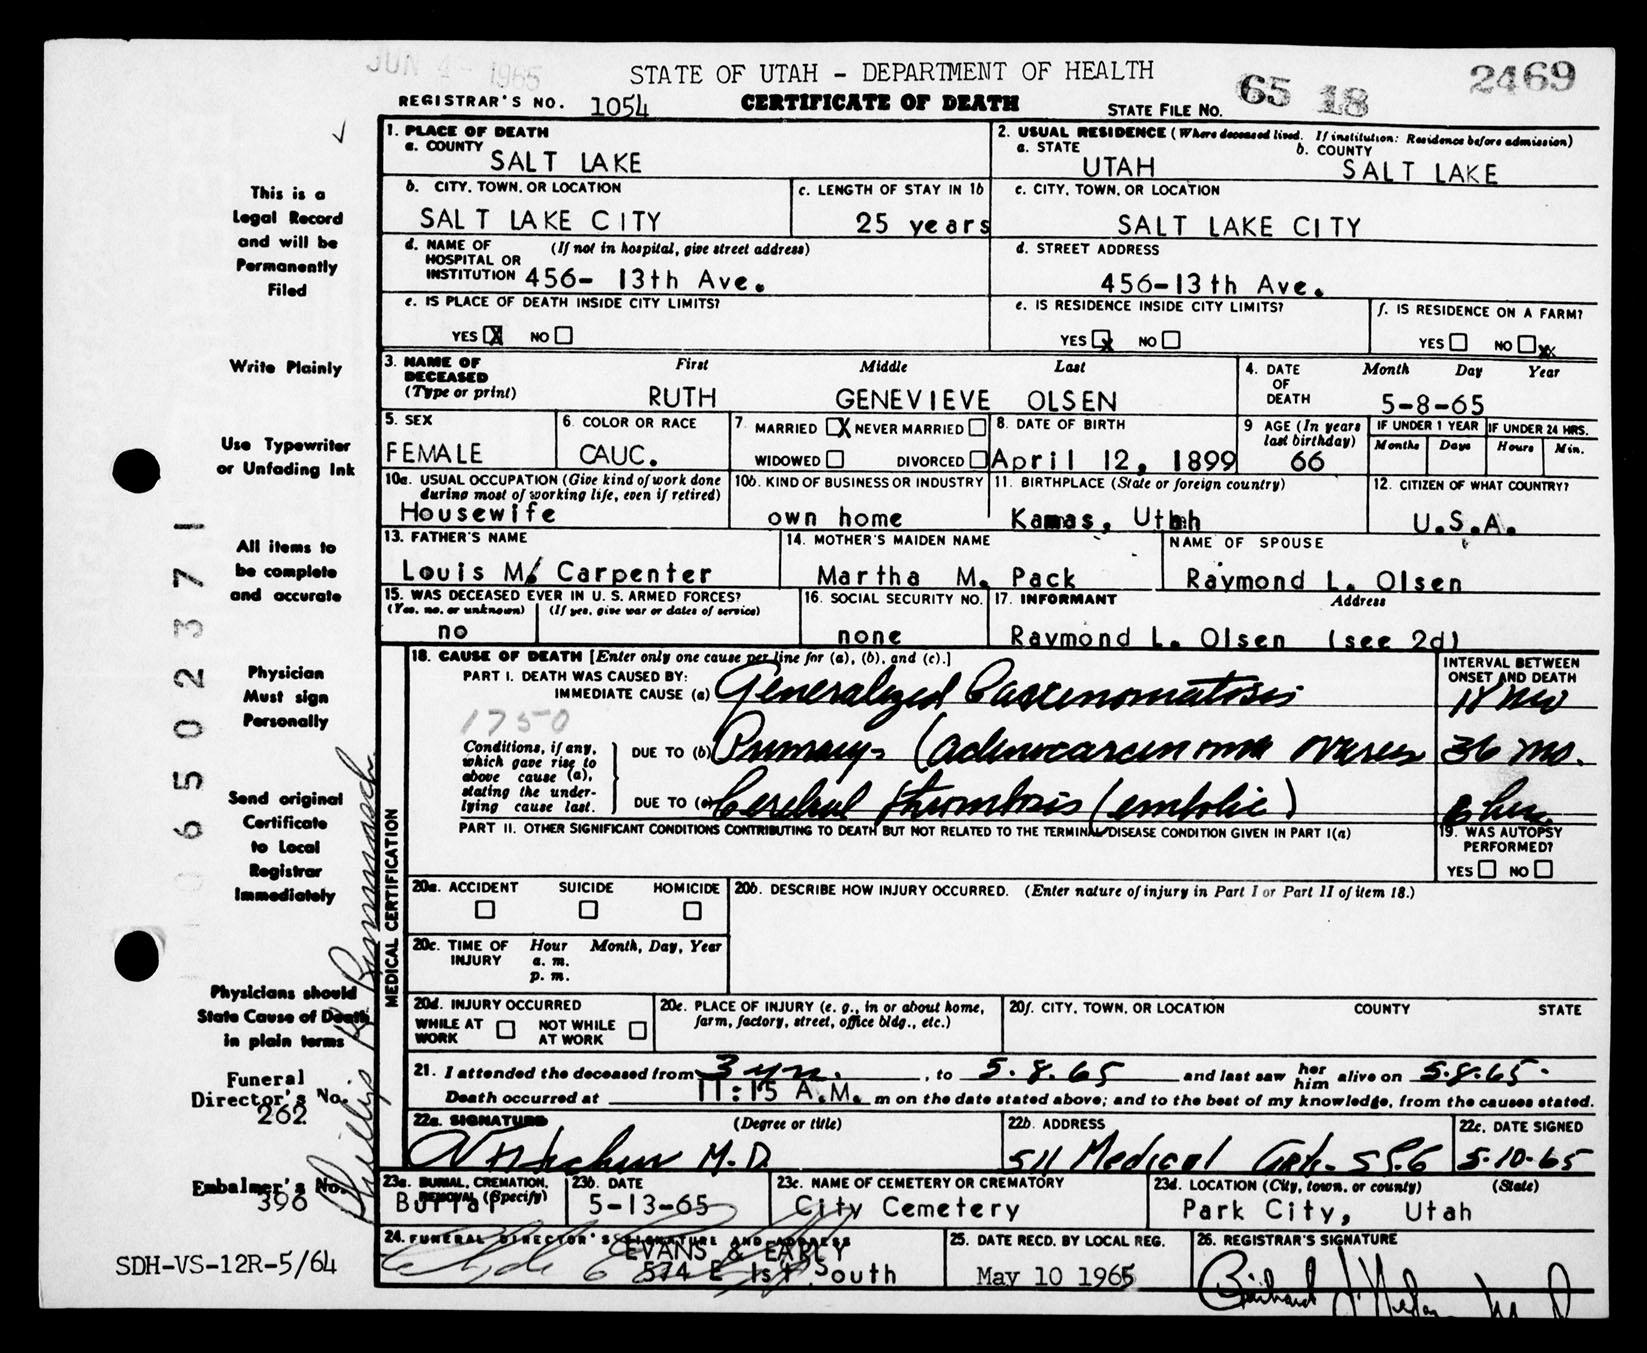 JUN 4 - 1965
STATE OF UTAH - DEPARTMENT OF HEALTH
REGISTRAR'S NO. 1054 CERTIFICATE OF DEATH STATE FILE NO. 65 18 2469
1. PLACE OF DEATH
a. COUNTY SALT LAKE
2. USUAL RESIDENCE (Where deceased lived. If institution: Residence before admission)
a. STATE UTAH b. COUNTY SALT LAKE
b. CITY, TOWN, OR LOCATION SALT LAKE CITY
c. LENGTH OF STAY IN 1b 25 years
c. CITY, TOWN, OR LOCATION SALT LAKE CITY
d. NAME OF HOSPITAL OR INSTITUTION (If not in hospital, give street address) 456- 13th Ave.
d. STREET ADDRESS 456-13th Ave.
e. IS PLACE OF DEATH INSIDE CITY LIMITS?
YES X NO
e. IS RESIDENCE INSIDE CITY LIMITS?
YES X NO
f. IS RESIDENCE ON A FARM?
YES NO xx
3. NAME OF DECEASED (Type or print) First Middle Last
RUTH GENEVIEVE OLSEN
4. DATE OF DEATH Month Day Year
5-8-65
5. SEX FEMALE
6. COLOR OR RACE CAUC.
7 MARRIED X NEVER MARRIED
WIDOWED DIVORCED
8. DATE OF BIRTH April 12, 1899
9 AGE (In years last birthday) 66
IF UNDER 1 YEAR Months Days
IF UNDER 24 HRS. Hours Min.
10a. USUAL OCCUPATION (Give kind of work done during most of working life, even if retired)
Housewife
10b. KIND OF BUSINESS OR INDUSTRY own home
11. BIRTHPLACE (State or foreign country) Kamas, Utah
12. CITIZEN OF WHAT COUNTRY? U.S.A.
13. FATHER'S NAME Louis M. Carpenter
14. MOTHER'S MAIDEN NAME Martha M. Pack
NAME OF SPOUSE Raymond L. Olsen
15. WAS DECEASED EVER IN U. S. ARMED FORCES?
(Yes, no, or unknown) (If yes, give war or dates of service)
no
16. SOCIAL SECURITY NO. none
17. INFORMANT Address
Raymond L. Olsen (see 2d)
MEDICAL CERTIFICATION
18. CAUSE OF DEATH [Enter only one cause per line for (a), (b), and (c).]
INTERVAL BETWEEN ONSET AND DEATH
PART I. DEATH WAS CAUSED BY:
IMMEDIATE CAUSE (a) Generalized Carcinomatosis 18 mo
1750
Conditions, if any, which gave rise to above cause (a), stating the underlying cause last.
DUE TO (b) Primary- (adenocarcinoma ovaries 36 mo.
DUE TO (c) Cerebral thrombosis (embolic)
PART II. OTHER SIGNIFICANT CONDITIONS CONTRIBUTING TO DEATH BUT NOT RELATED TO THE TERMINAL DISEASE CONDITION GIVEN IN PART I(a)
19. WAS AUTOPSY PERFORMED?
YES NO
20a. ACCIDENT SUICIDE HOMICIDE
20b. DESCRIBE HOW INJURY OCCURRED. (Enter nature of injury in Part I or Part II of item 18.)
20c. TIME OF INJURY Hour Month, Day, Year
a. m.
p. m.
20d. INJURY OCCURRED
WHILE AT WORK NOT WHILE AT WORK
20e. PLACE OF INJURY (e. g., in or about home, farm, factory, street, office bldg., etc.)
20f. CITY, TOWN, OR LOCATION COUNTY STATE
21. I attended the deceased from 3 yrs. , to 5.8.65 and last saw her him alive on 5.8.65.
Death occurred at 11:15 A.M. m on the date stated above; and to the best of my knowledge, from the causes stated.
22a. SIGNATURE (Degree or title)
M.D.
22b. ADDRESS
511 Medical Arts
22c. DATE SIGNED
5-10-65
23a. BURIAL, CREMATION, REMOVAL (Specify) Burial
23b. DATE 5-13-65
23c. NAME OF CEMETERY OR CREMATORY City Cemetery
23d. LOCATION (City, town, or county) (State)
Park City, Utah
24. FUNERAL DIRECTOR'S SIGNATURE AND ADDRESS
EVANS & EARLY
574 E 1st South
25. DATE RECD. BY LOCAL REG.
May 10 1965
26. REGISTRAR'S SIGNATURE
This is a
Legal Record
and will be
Permanently
Filed
Write Plainly
Use Typewriter
or Unfading Ink
All items to
be complete
and accurate
Physician
Must sign
Personally
Send original
Certificate
to Local
Registrar
Immediately
Physicians should
State Cause of Death
in plain terms
Funeral
Director's No.
262
Embalmer's No.
396
SDH-VS-12R-5/64
0 6 5 0 2 3 7 1